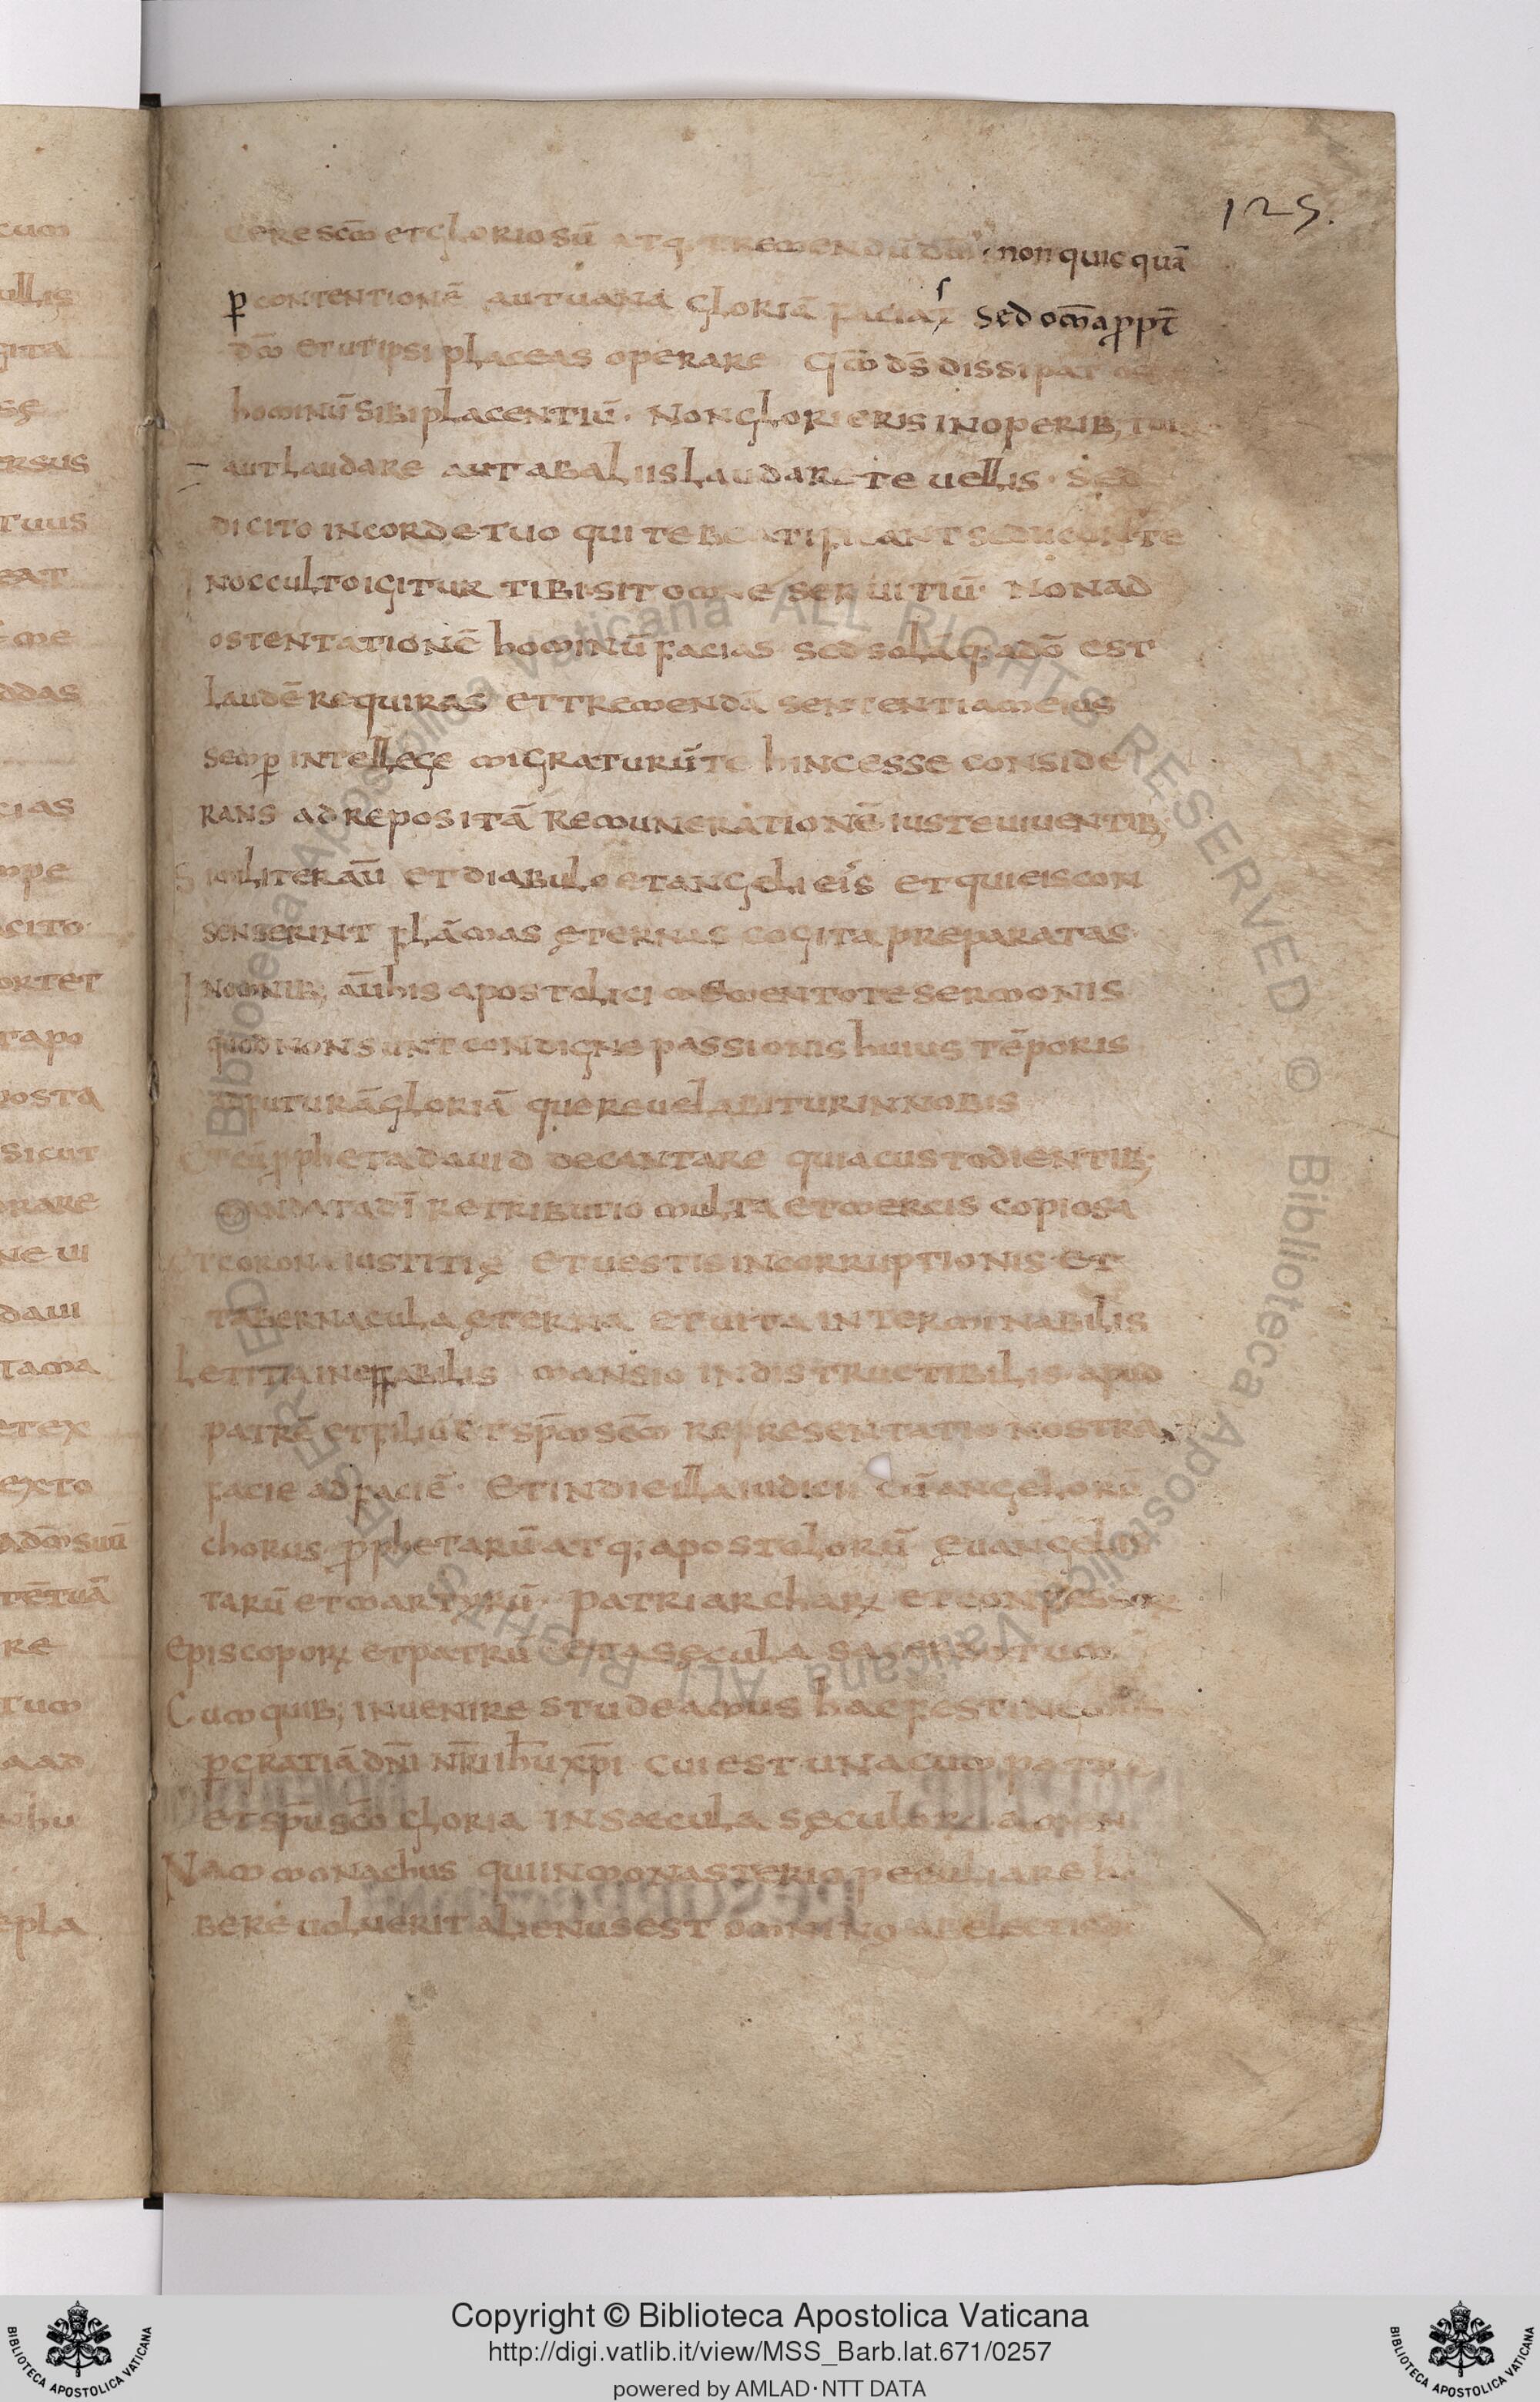 125.
cere scm̄ et gloriosū atq; tremendū dm̄ · non quicquā
ꝑ contentionē aut uana gloriā facias sed om̄a propt̄
dm̄ et ut ipsi placeas operare qm̄ ds̄ dissipat
hominū sibi placentiū · Non glorieris in operib; tuis
aut laudare aut ab aliis laudare te uellis · sed
dicito in corde tuo qui te beatificant seducont te
In occulto igitur tibi sit omne seruitiū · Non ad
ostentationē hominū facias sed sola q; a dō est
laudē requiras et tremendā sententiam eius
semꝑ intellege migraturū te hinc esse conside
rans ad repositā remunerationē iuste uiuentib;
Similiter aū et diabulo et angeli eis et qui eis con
senserint flāmas ęternas cogita preparatas
In omnib; aū his apostolici mementote sermonis
quod non sunt condigne passionis huius tēporis
ad futurā gloriā que reuelabitur in nobis
Et cū ꝓpheta dauid decantare quia custodientib;
mandata dī retributio multa et mercis copiosa
et corona iustitię et uestis incorruptionis · et
tabernacula ęterna et uita interminabilis
Letitia ineffabilis mansio indistructibilis · apud
patrē et filiū et sp̄m scm̄ representatio nostra
facie ad faciē · Et in die illa iudicii cū angelorū
chorus ꝓphetarū atq; apostolorū ęuangelis
tarū et martyrū · patriarcharꝝ et confessorꝝ
Episcoporꝝ et patrū et a sęcula sacerdotum
Cum quib; inuenire studeamus hac festinemus
ꝑ gratiā dn̄i nr̄i ihū xp̄i · cui est una cum patre
et sp̄u scō gloria in sæcula sęculorꝝ amen
Nam monachus qui in monasterio peculiare ha
bere uoluerit alienus est omnino ab electione
Copyright © Biblioteca Apostolica Vaticana
http://digi.vatlib.it/view/MSS_Barb.lat.671/0257
powered by AMLAD·NTT DATA